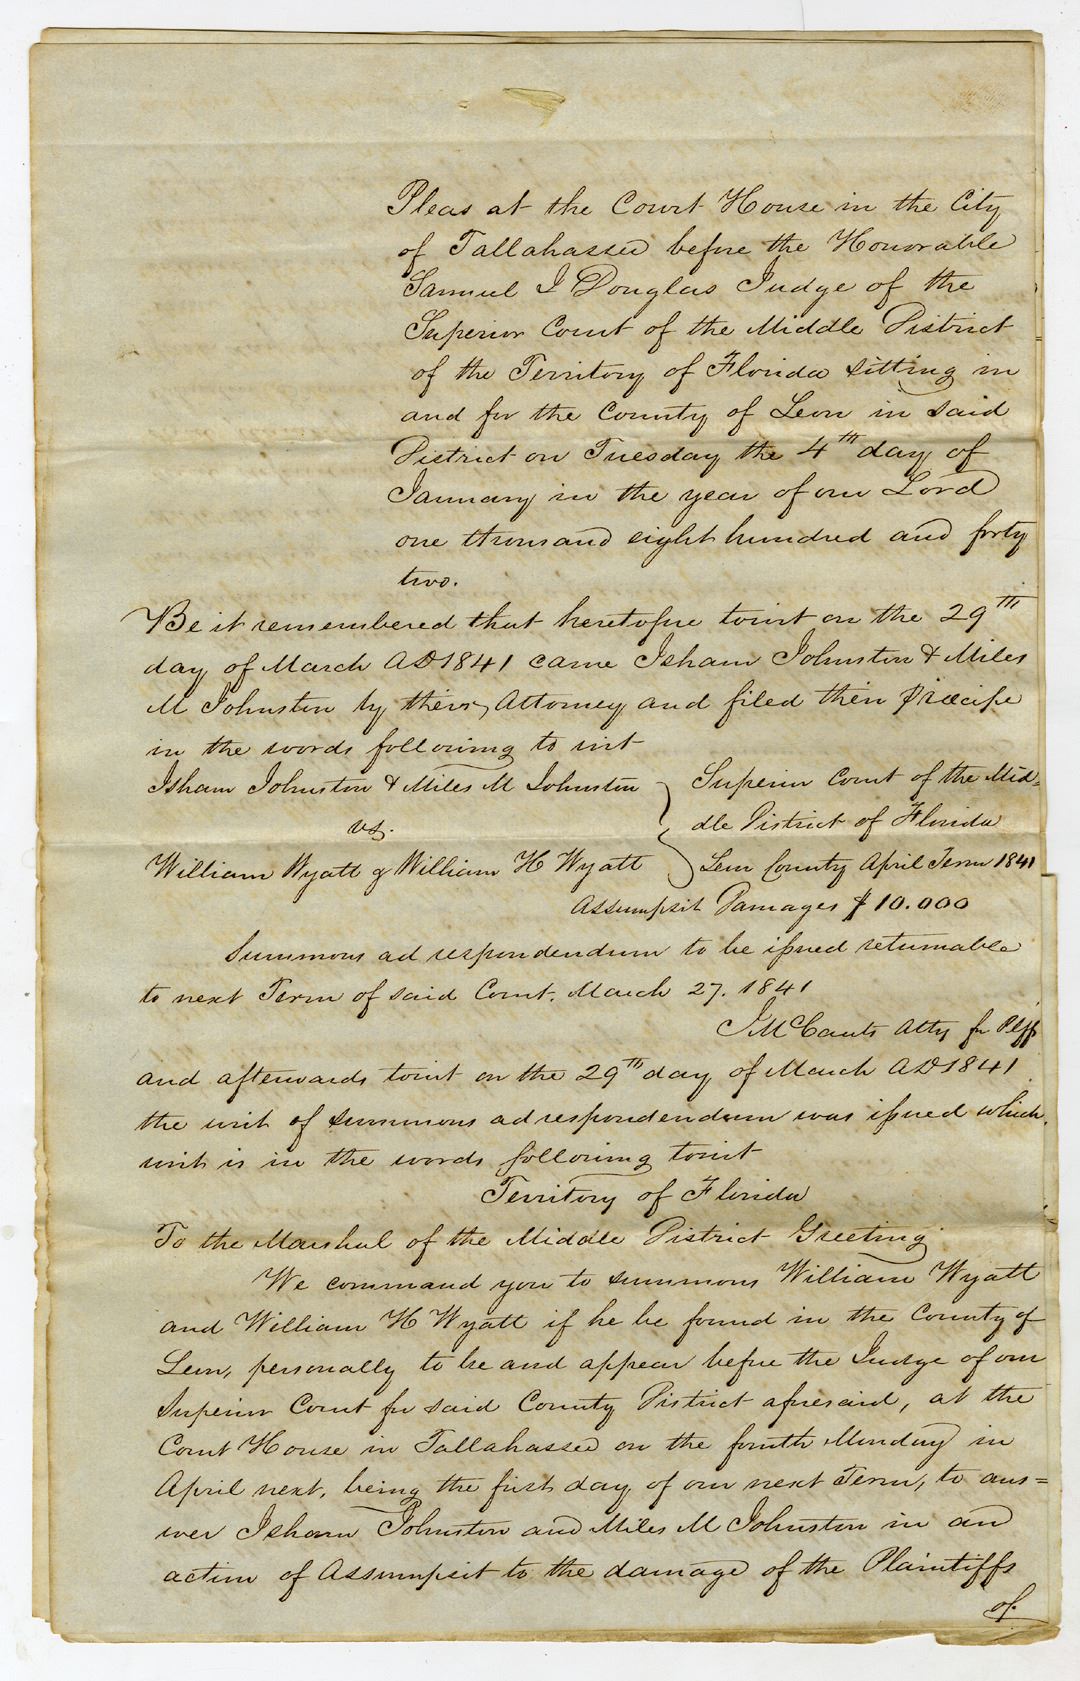 Pleas at the Court House in the City
of Tallahassee before the Honorable
Samuel J Douglas Judge of the
Superior Court of the Middle District
of the Territory of Florida sitting in
and for the County of Leon in said
District on Tuesday the 4th day of
January in the year of our Lord
one thousand eight hundred and forty
two.
Be it remembered that heretofore towit on the 29th
day of March AD 1841 came Isham Johnston & Miles
M Johnston by their Attorney and filed their præcipe
in the words following to wit
Isham Johnston & Miles M Johnston } Superior Court of the Mid=
vs. } dle District of Florida
William Wyatt & William H Wyatt } Leon County April Term 1841
Assumpsit Damages $10.000
Summons ad respondendum to be issued returnable
to next Term of said Court. March 27. 1841
J McCants Atty for Plffs
and afterwards towit on the 29th day of March AD 1841
the writ of summons ad respondendum was issued which
writ is in the words following towit
Territory of Florida
To the Marshal of the Middle District Greeting
We command you to summons William Wyatt
and William H Wyatt if he be found in the County of
Leon, personally to be and appear before the Judge of our
Superior Court for said County District aforesaid, at the
Court House in Tallahassee on the fourth Monday in
April next, being the first day of our next Term, to ans=
wer Isham Johnston and Miles M Johnston in an
action of Assumpsit to the damage of the Plaintiffs
of